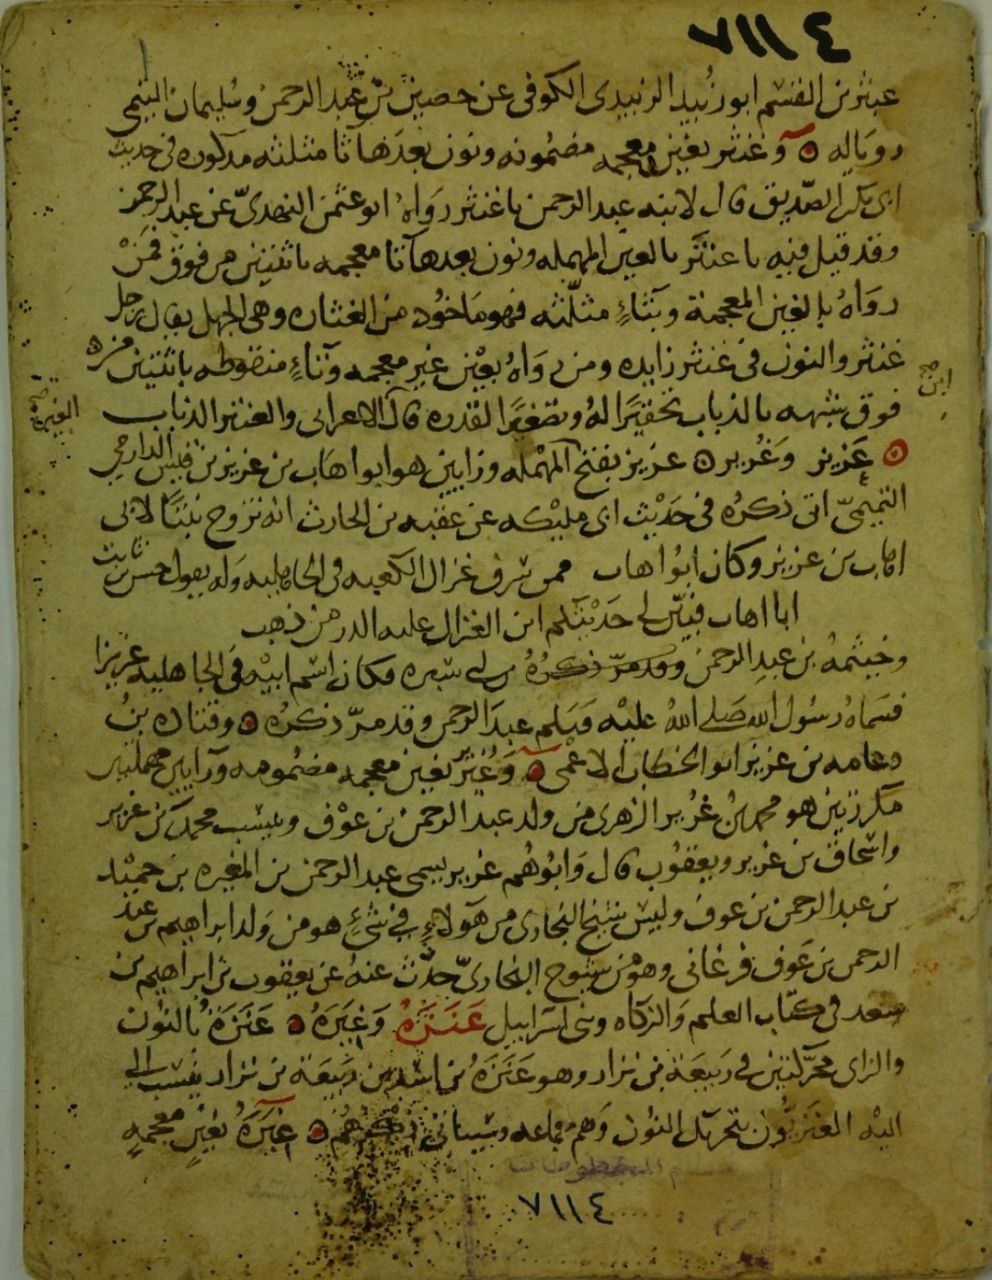 ٧١١٤
عبثر بن القسم ابو زبيد الزبيدى الكوفى عن حصين بن عبد الرحمن وسليمان التيمى
رويا له ٥ وغنثر بغين معجمه مضمومه ونون بعدها ثا مثلثه مذكوره فى حديث
ابى بكر الصديق قال لابنه عبد الرحمن يا غنثر رواه ابو عثمن النهدى عن عبد الرحمن
وقد قيل فيه يا عنتر بالعين المهمله ونون بعدها تا معجمه باثنتين من فوق فمن
رواه بالغين المعجمة وبثاء مثلثه فهو ماخوذ من الغثاره وهى الجهل يقال رجل
غنثر والنون فى غنثر زايده ومن رواه بعين غير معجمه وتاء منقوطه باثنتين من
فوق شبهه بالذباب تحقيرا له وتصغيرا لقدره قال الاعرابى والعنتر الذباب
ابن صح
الغيره صح
٥ عزيز وغرير ٥ عزيز بفتح المهمله وزايين هو ابو اهاب بن عزيز بن قيس الدارمى
التميمى اتى ذكره فى حديث ابى مليكه عن عقبه بن الحارث انه تزوج بنتا لابى
اهاب بن عزيز وكان ابو اهاب ممن سرق غزال الكعبه فى الجاهليه وله يقول حسن بن ثابت
ابا اهاب فبين لى حديثكم اين الغزال عليه الدر من ذهب
وخيثمه بن عبد الرحمن وقد مر ذكره بن ابى سبره وكان اسم ابيه فى الجاهليه عزيزا
فسماه رسول الله صلى الله عليه وسلم عبد الرحمن وقد مر ذكره ٥ وقتاده بن
دعامه بن عزيز ابو الخطاب الاعمى ٥ وغرير بغين معجمه مضمومه ورايين مهملتين
مكررتين هو محمد بن غرير الزهرى من ولد عبد الرحمن بن عوف وينسب محمد بن غرير
واسحاق بن غرير ويعقوب قال وابوهم غرير يسمى عبد الرحمن بن المغيره بن حميد
بن عبد الرحمن بن عوف وليس شيخ البخارى من هولاء فى شئ هو من ولد ابراهيم بن عبد
الرحمن بن عوف فرغانى وهو من شيوخ البخارى حدث عنه عن يعقوب بن ابراهيم بن
سعد فى كتاب العلم والزكاه وبنى اسرايل عنزه وغيره ٥ عنزة بالنون
والزاى محركتين فى ربيعة بن نزار وهو عنزة بن اسد بن ربيعة بن نزار ينسب
اليه العنزيون بتحريك النون وهم جماعه وسياتى ذكرهم ٥ غيرة بغين معجمه
٧١١٤